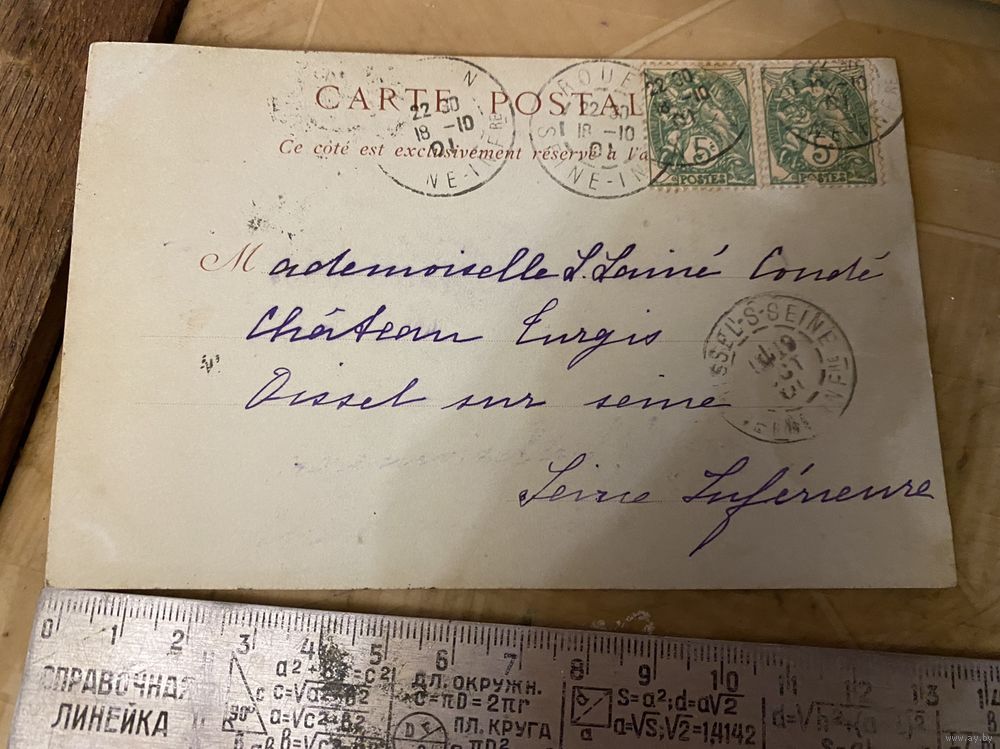 CARTE POSTAL
Ce côté est exclusivement réservé à l'a
22 30
18 -10
01
NE-INFRE
ROUE
22 30
18 -10
01
S INE-IN
5
POSTES
5
POSTES
Mademoiselle L. Lainé Condé
Château Turgis
Oissel sur seine
Seine Inférieure
ISSEL-S-SEINE
19
OCT
01
0 1 2 3 4 5 6 7 8 9 10 11 12 13 14
СПРАВОЧНАЯ
ЛИНЕЙКА
ДЛ. ОКРУЖН.
C=πD=2πr
ПЛ. КРУГА
S=a²;d=a√2
a=√S;√2=1,4142
www.ay.by